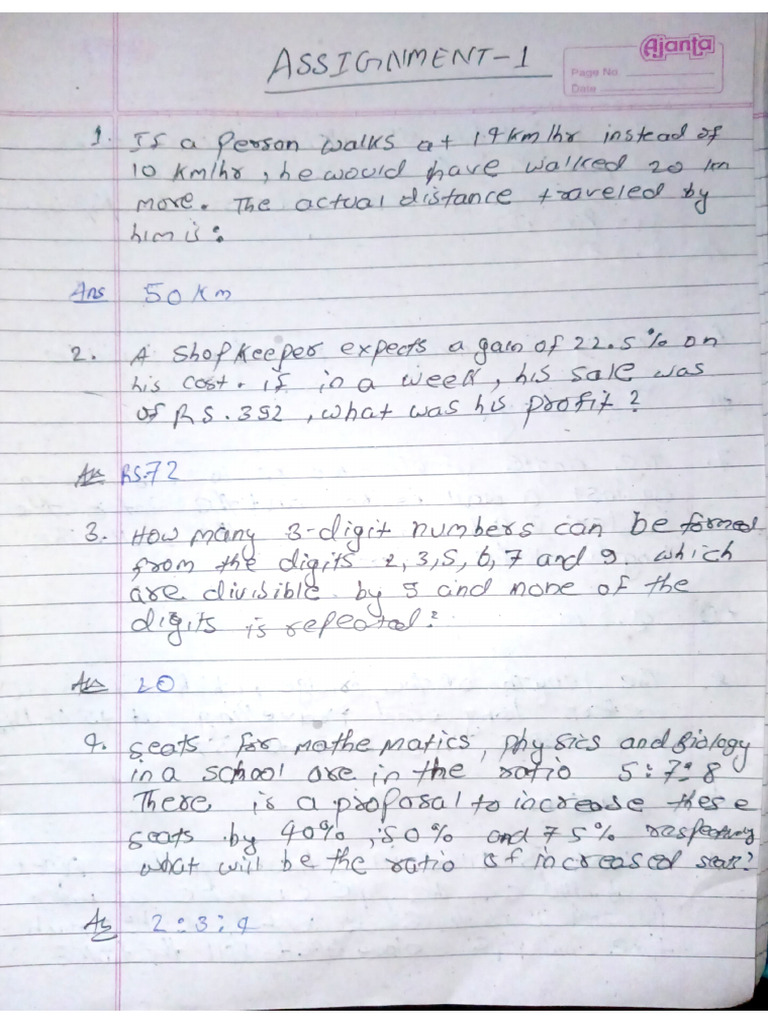 Ajanta
Page No
Date
ASSIGNMENT-1
1. If a person walks at 14 km/hr instead of
10 km/hr, he would have walked 20 km
more. The actual distance traveled by
him is:
Ans 50 Km
2. A shopkeeper expects a gain of 22.5% on
his cost. if in a week, his sale was
of RS. 392, what was his profit?
An RS.72
3. How many 3-digit numbers can be formed
from the digits 2,3,5,6,7 and 9 which
are divisible by 5 and none of the
digits is repeated?
An 20
4. seats for mathematics, physics and Biology
in a school are in the ratio 5:7:8
There is a proposal to increase these
seats by 40%, 50% and 75%
what will be the ratio of increased seats?
As 2:3:4